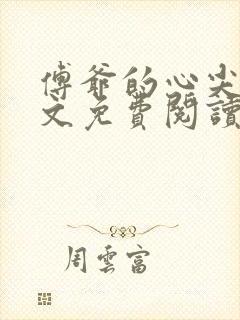 傅爺的心尖
文免費閱讀
周雲富